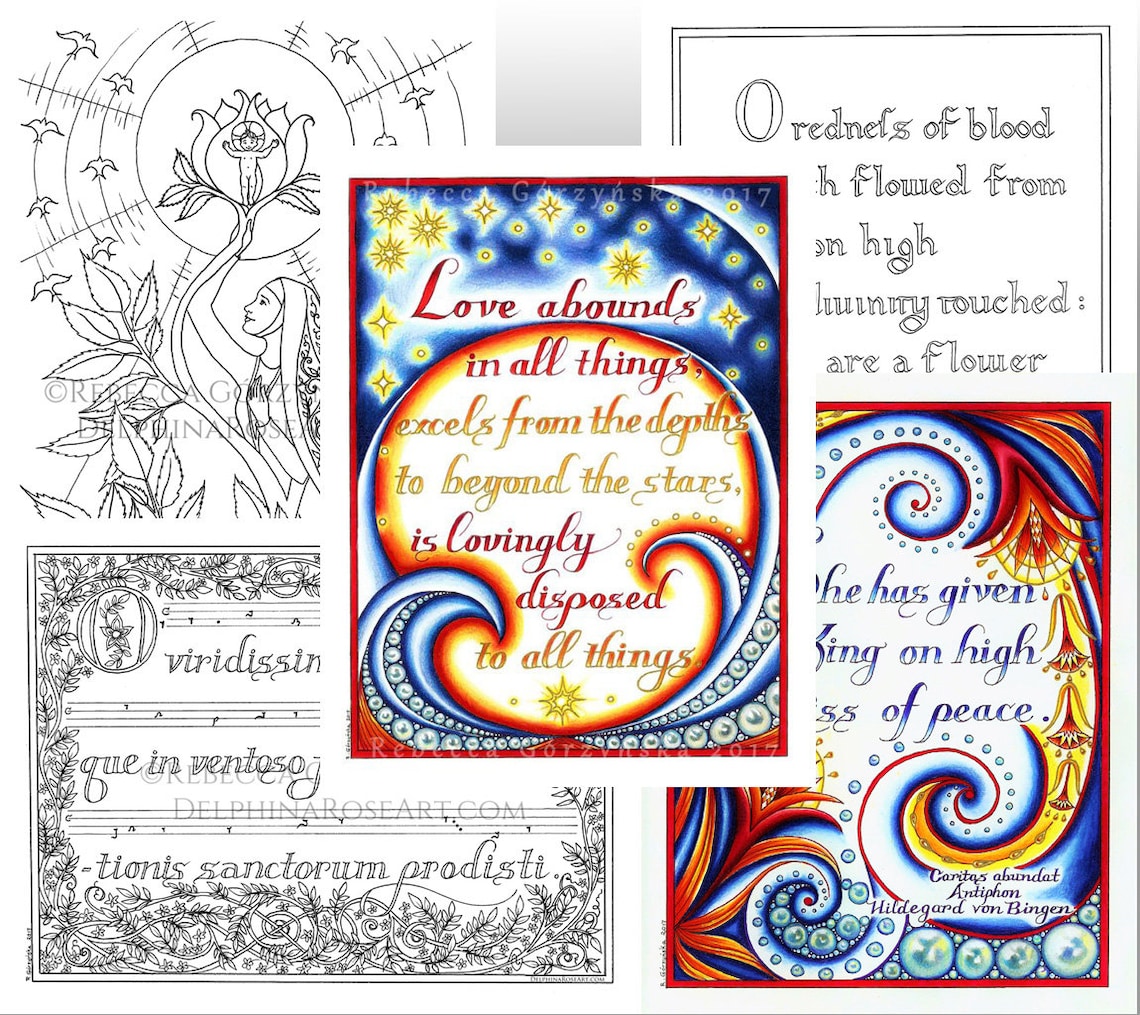 ©Rebecca Górz
DelphinaRoseArt
O redneſs of blood
h flowed from
on high
divinity touched :
are a flower
Rebecca Górzyńska 2017
Love abounds
in all things,
excels from the depths
to beyond the stars,
is lovingly
disposed
to all things.
Rebecca Górzyńska 2017
R. Górzyńska 2017
O
viridissim
que in ventoso
©Rebecca G
DelphinaRoseArt.com
-tionis sanctorum prodisti.
R. Górzyńska 2017
DelphinaRoseArt.com
he has given
King on high
ss of peace.
Caritas abundat
Antiphon
Hildegard von Bingen
R. Górzyńska 2017